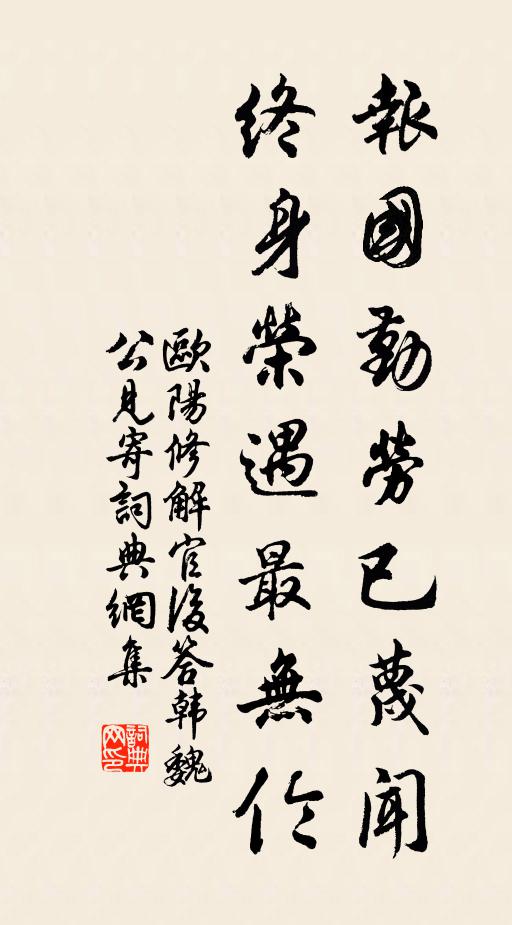 報國勤勞已蔑聞
終身榮遇最無倫
歐陽修解官後答韓魏
公見寄詞典網集
詞典
网印